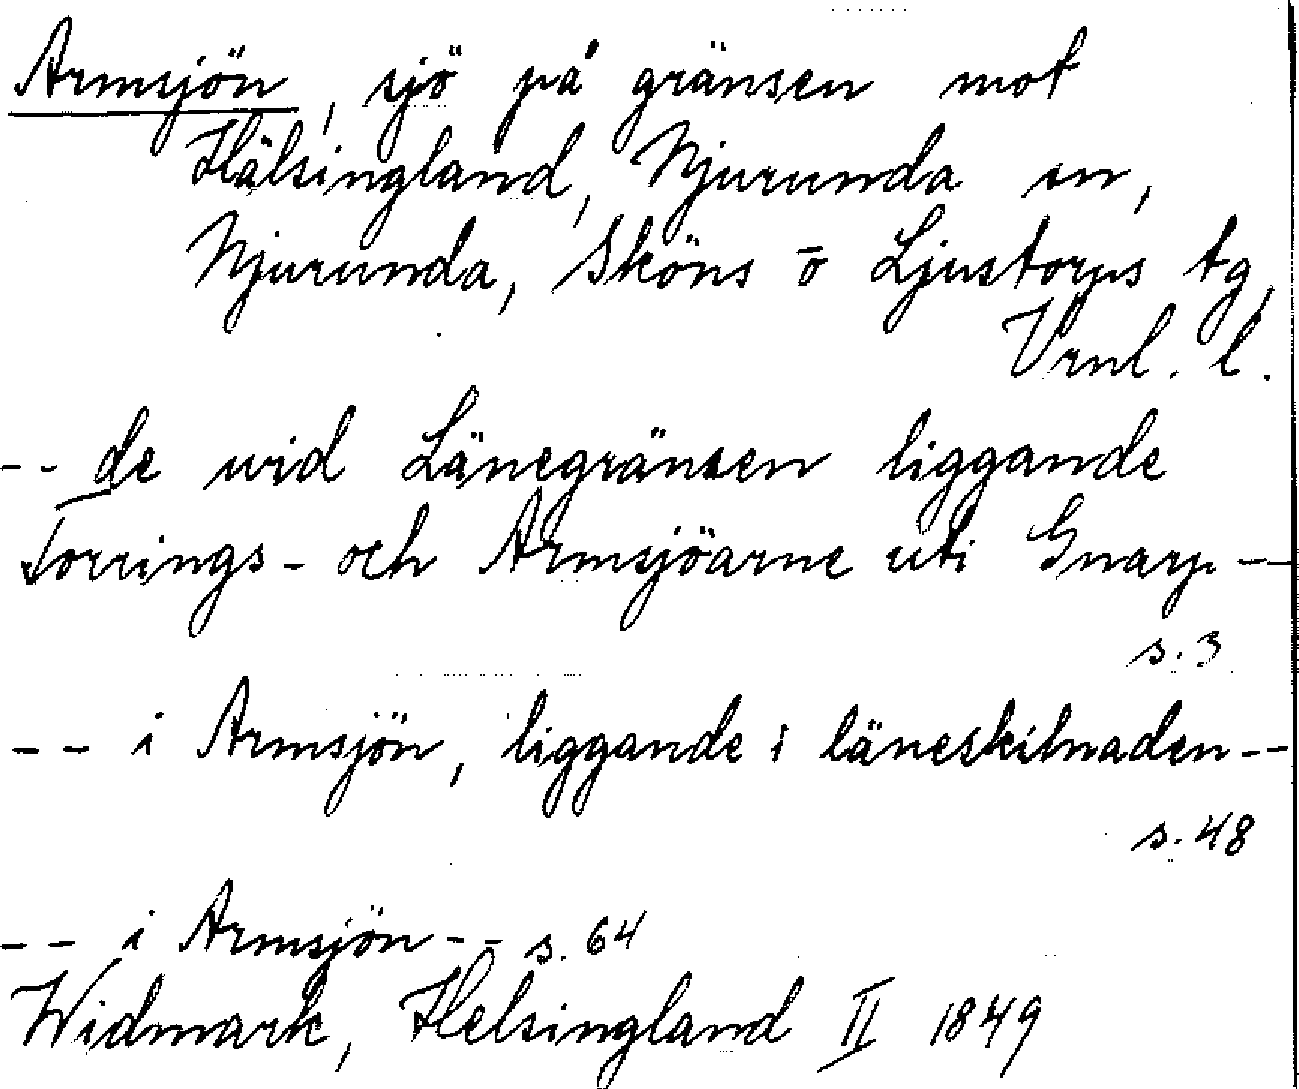 Armsjön, sjö på gränsen mot
Hälsingland, Njurunda sn,
Njurunda, Sköns o Ljustorps tg,
Vrnl. l.
-- de wid Länegränsen liggande
Torrings- och Armsjöarne uti Gnarp --
s. 3
-- i Armsjön, liggande i läneskilnaden --
s. 48
-- i Armsjön -- s. 64
Widmark, Helsingland II 1849